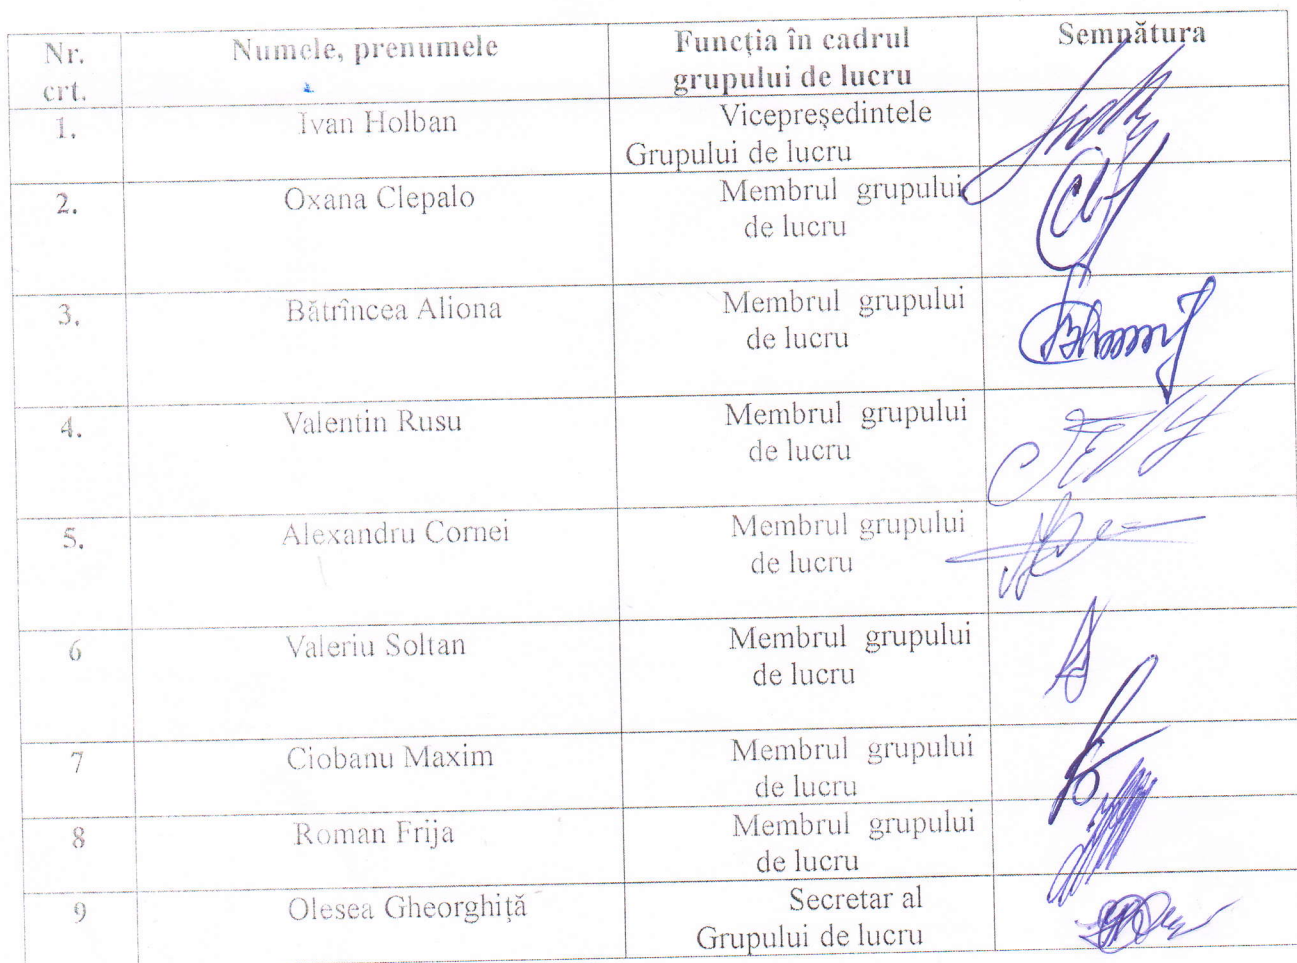 Nr. crt. Numele, prenumele Funcția în cadrul grupului de lucru Semnătura
1. Ivan Holban Vicepreședintele
Grupului de lucru
2. Oxana Clepalo Membrul grupului
de lucru
3. Bătrîncea Aliona Membrul grupului
de lucru
4. Valentin Rusu Membrul grupului
de lucru
5. Alexandru Cornei Membrul grupului
de lucru
6 Valeriu Soltan Membrul grupului
de lucru
7 Ciobanu Maxim Membrul grupului
de lucru
8 Roman Frija Membrul grupului
de lucru
9 Olesea Gheorghiță Secretar al
Grupului de lucru